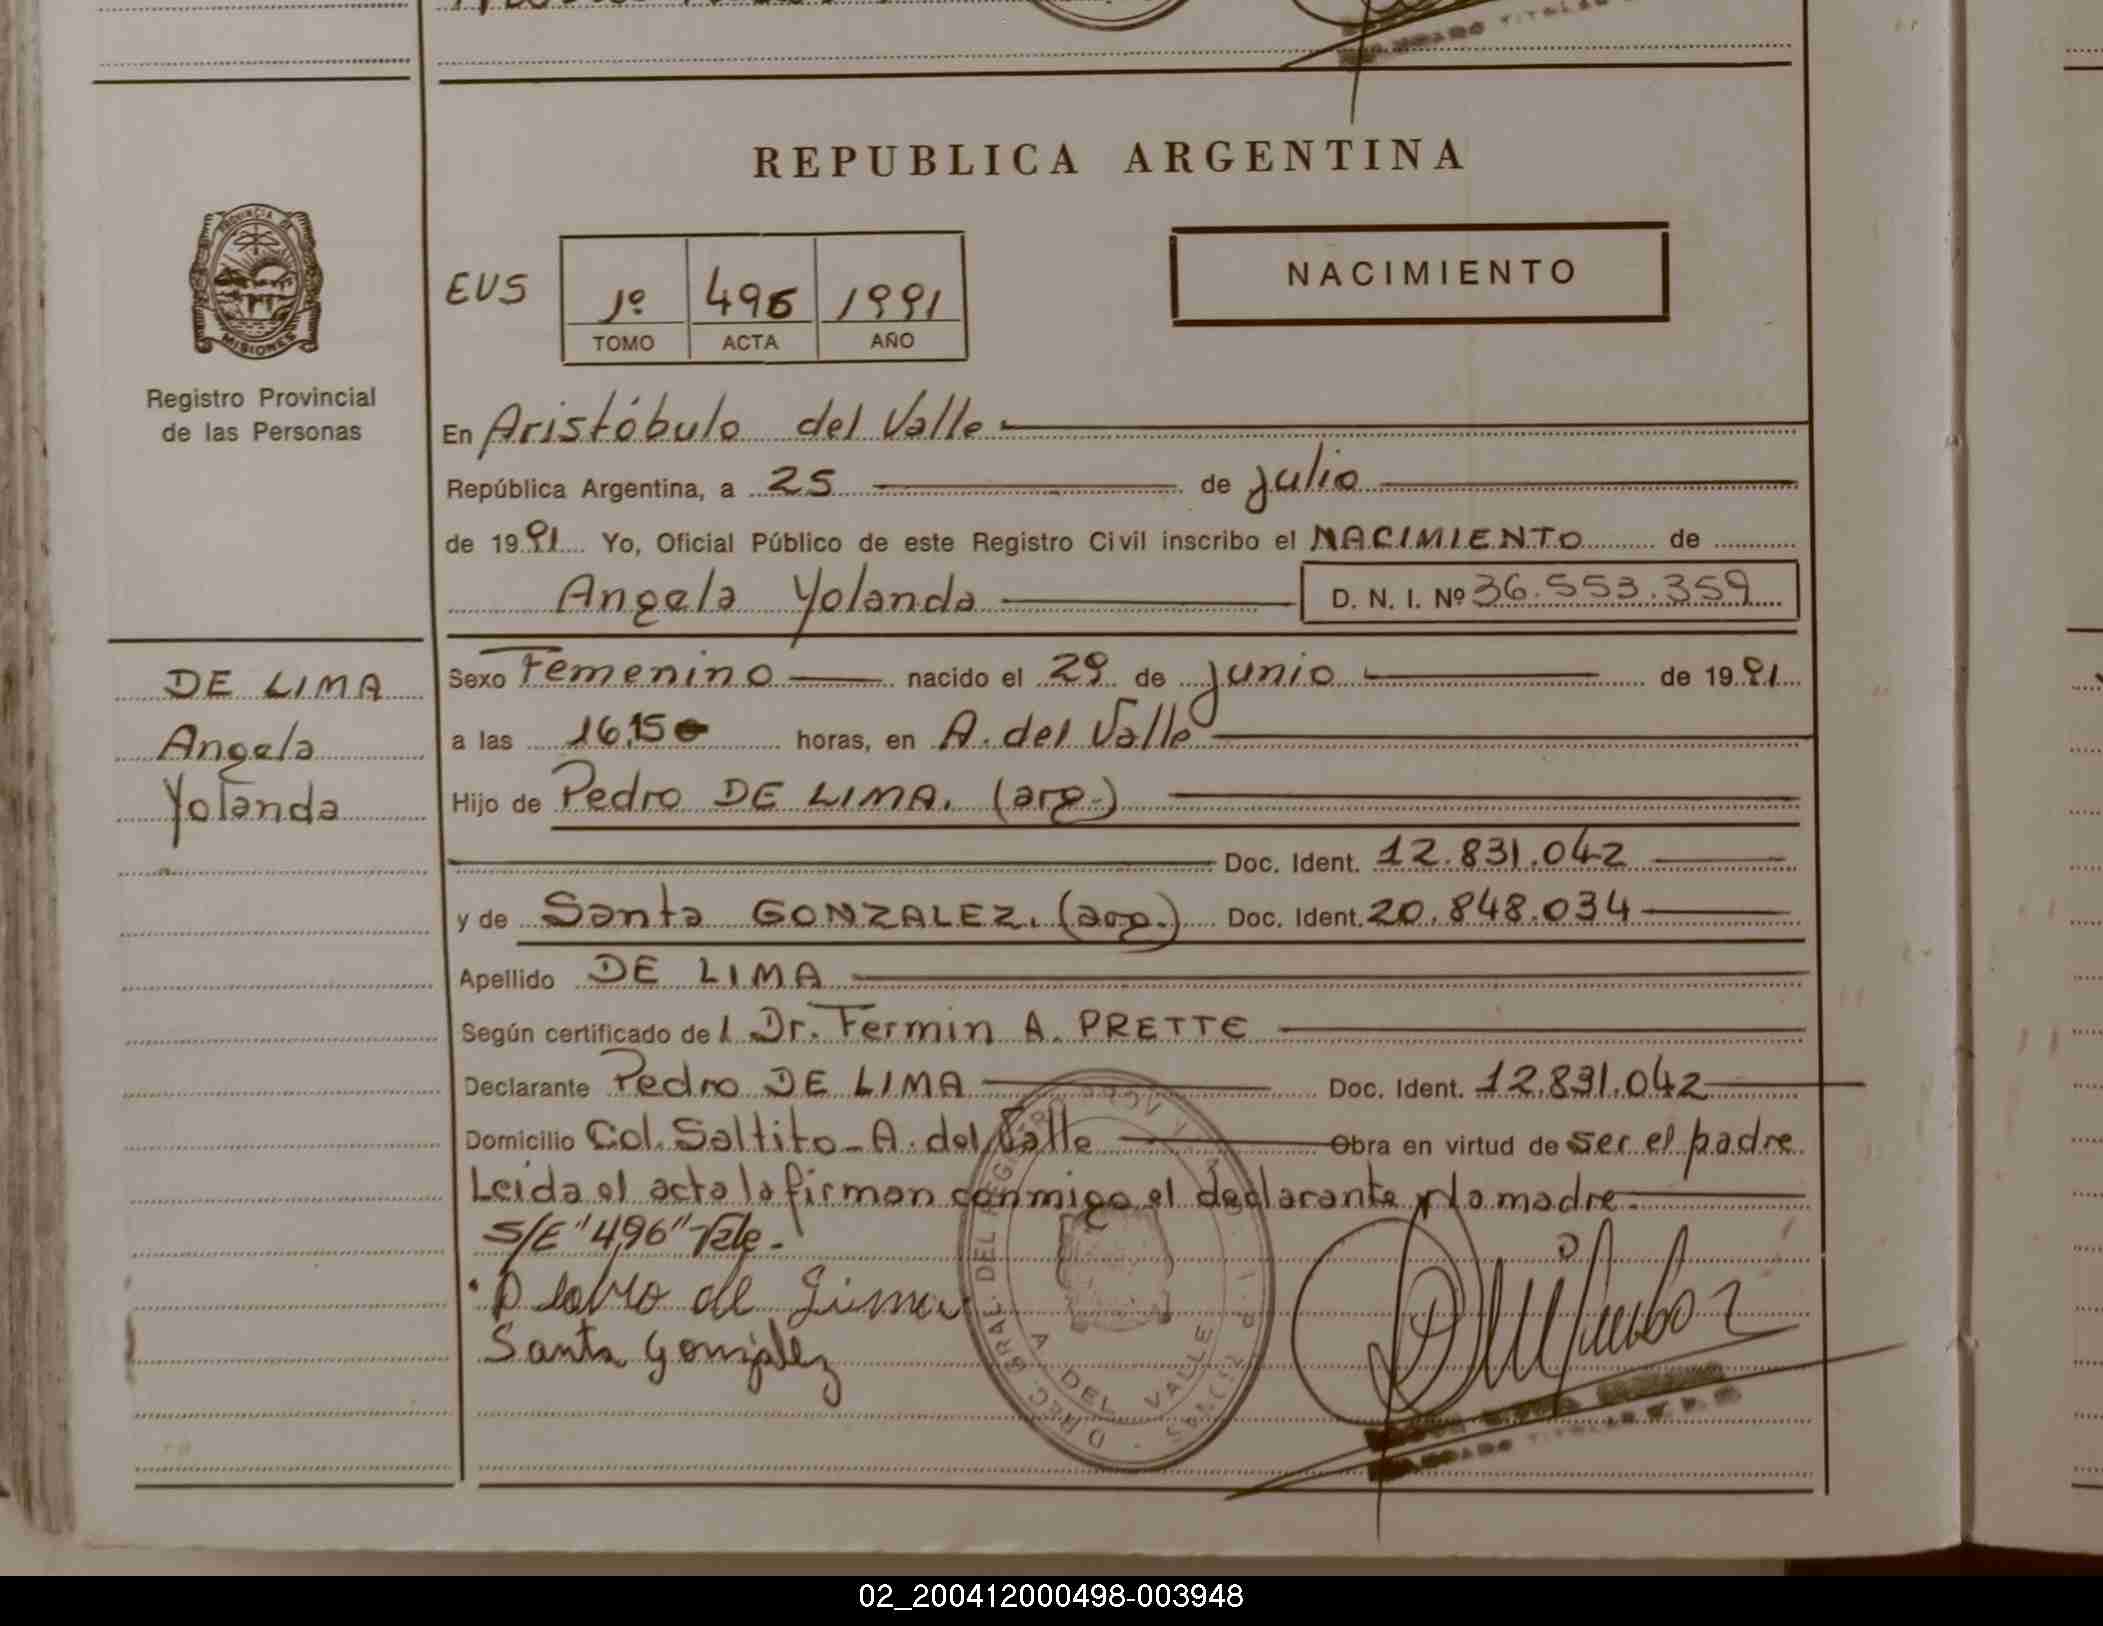 REPUBLICA ARGENTINA
PROVINCIA DE MISIONES
Registro Provincial
de las Personas
EUS
1º 496 1991
TOMO ACTA AÑO
NACIMIENTO
En Aristóbulo del Valle
República Argentina, a 25 de julio
de 1991 Yo, Oficial Público de este Registro Civil inscribo el NACIMIENTO de
Angela Yolanda D. N. I. Nº 36.553.359
DE LIMA
Angela
Yolanda
Sexo Femenino nacido el 29 de junio de 1991
a las 16,15 horas, en A. del Valle
Hijo de Pedro DE LIMA. (arg.)
Doc. Ident. 12.831.042
y de Santa GONZALEZ. (arg.) Doc. Ident. 20.848.034
Apellido DE LIMA
Según certificado de l Dr. Fermin A. PRETTE
Declarante Pedro DE LIMA Doc. Ident. 12.831.042
Domicilio Col. Saltito - A. del Valle Obra en virtud de ser el padre
Leida el acta la firman conmigo el declarante y la madre
S/E "496" Vale.-
de Lima
Santa Gonzalez
A. DEL VALLE
TITULAR
02_200412000498-003948